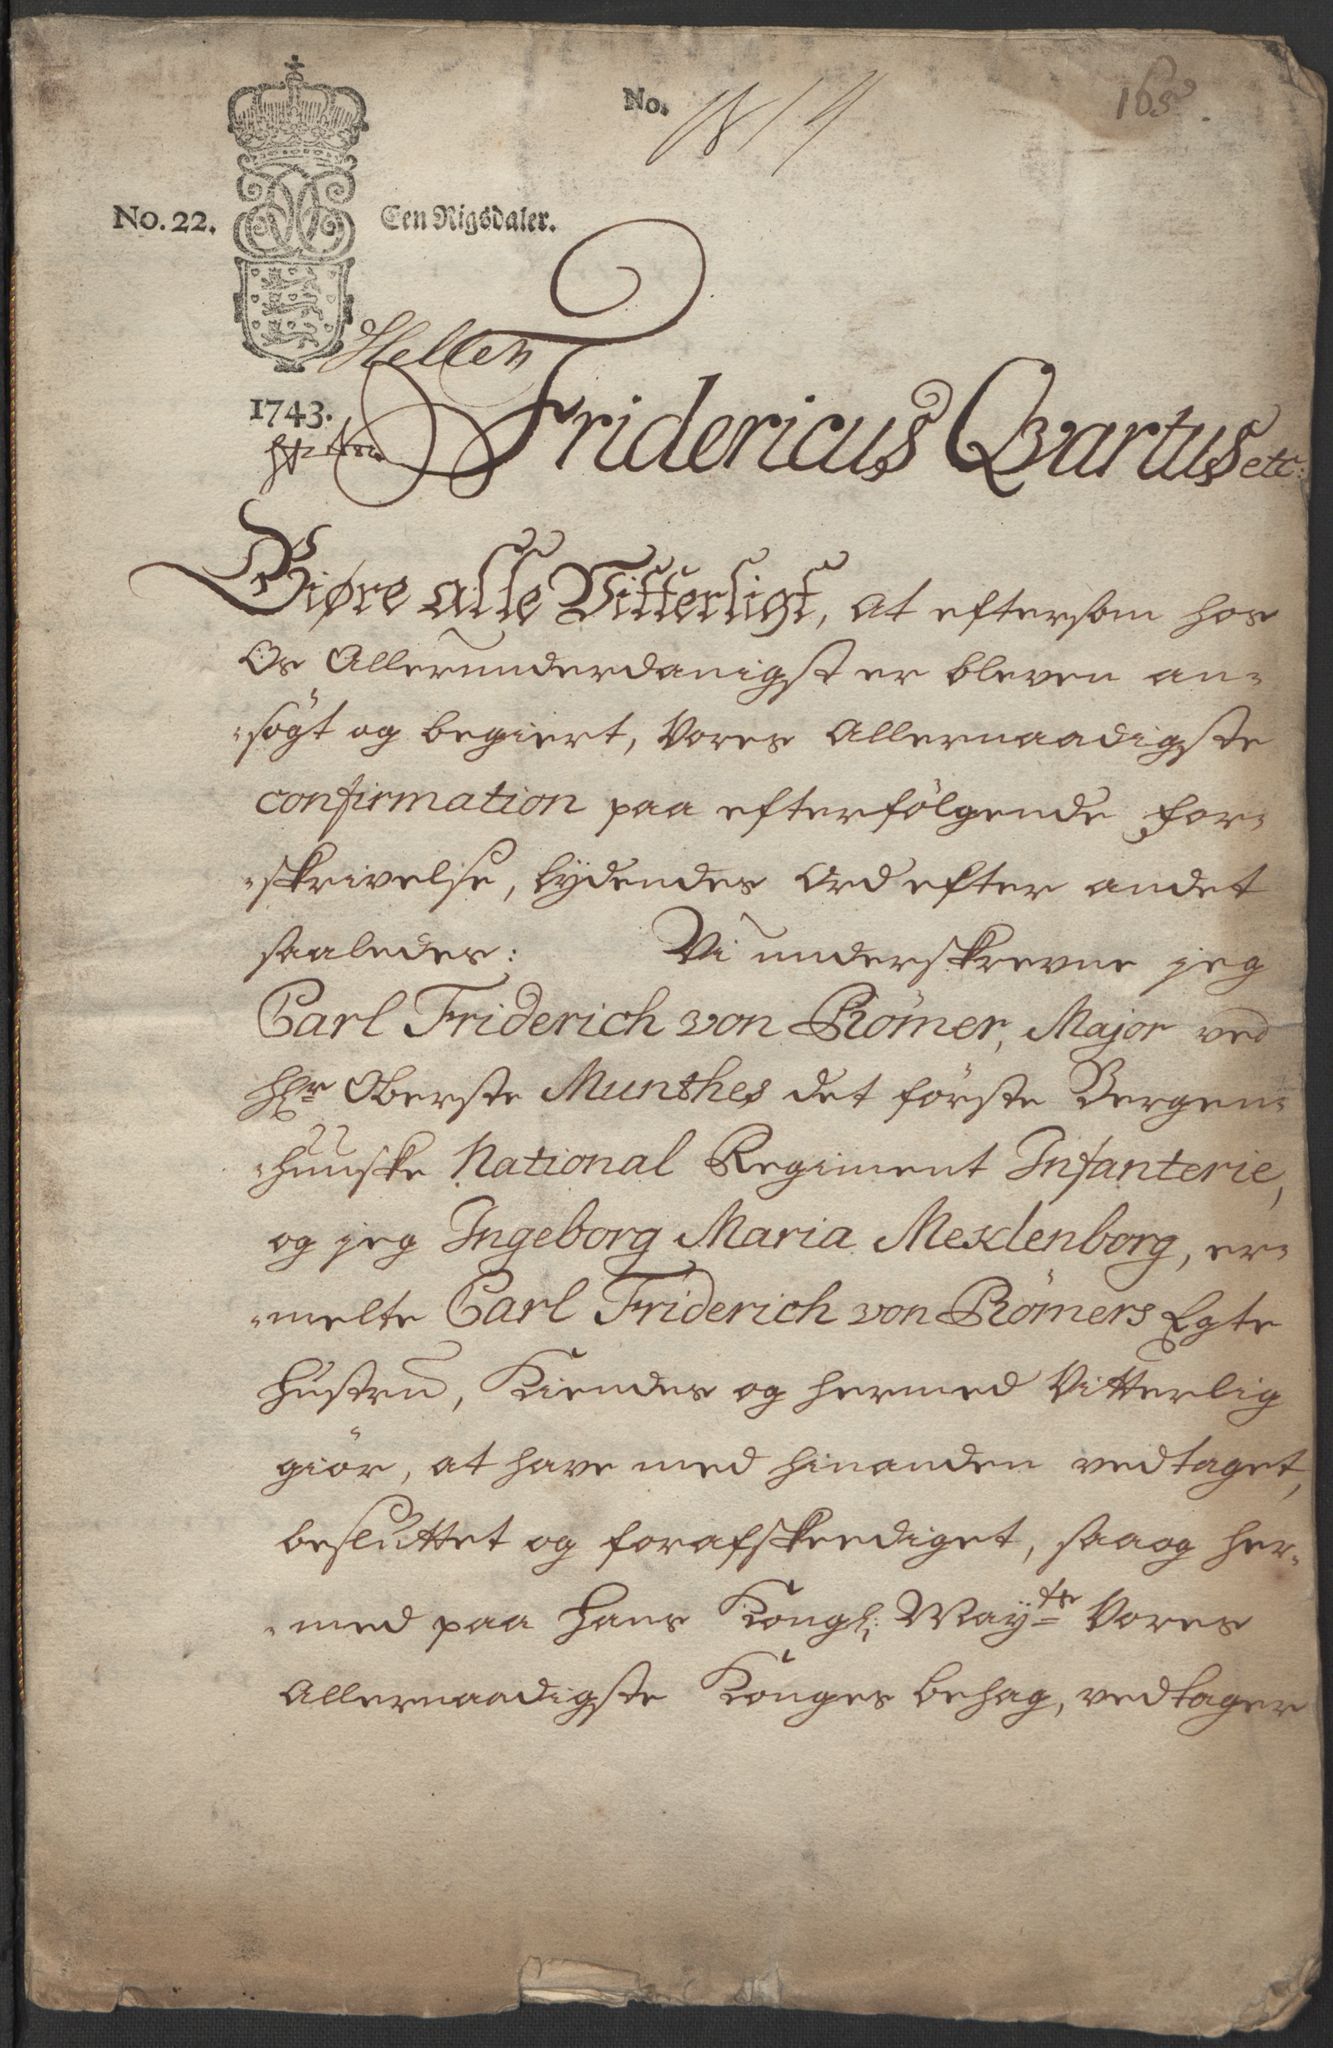 No. 1814
165.
No. 22.
Een Rigsdaler.
Hellen
1743.
Fridericus Qvartus etc:
Giøre alle Vitterligt, at eftersom hos
Os Allerunderdanigst er bleven an-
-søgt og begiert, Vores Allernaadigste
confirmation paa efterfølgende for-
-skrivelse, lydendes Ord efter andet
saaledes: Vi underskrevne jeg
Carl Friderich von Römer, Major ved
Hr Oberste Munthes det første Bergen-
-huuske National Regiment Infanterie,
og jeg Ingeborg Maria Mecklenborg, er-
-melte Carl Friderich von Römers Egte
Hustru, Kiendes og hermed Vitterlig
giör, at have med hinanden vedtaget,
besluttet og forafskeediget, saaog her-
-med paa Hans Kongl: Mayts Vores
Allernaadigste Konges behag, vedtager